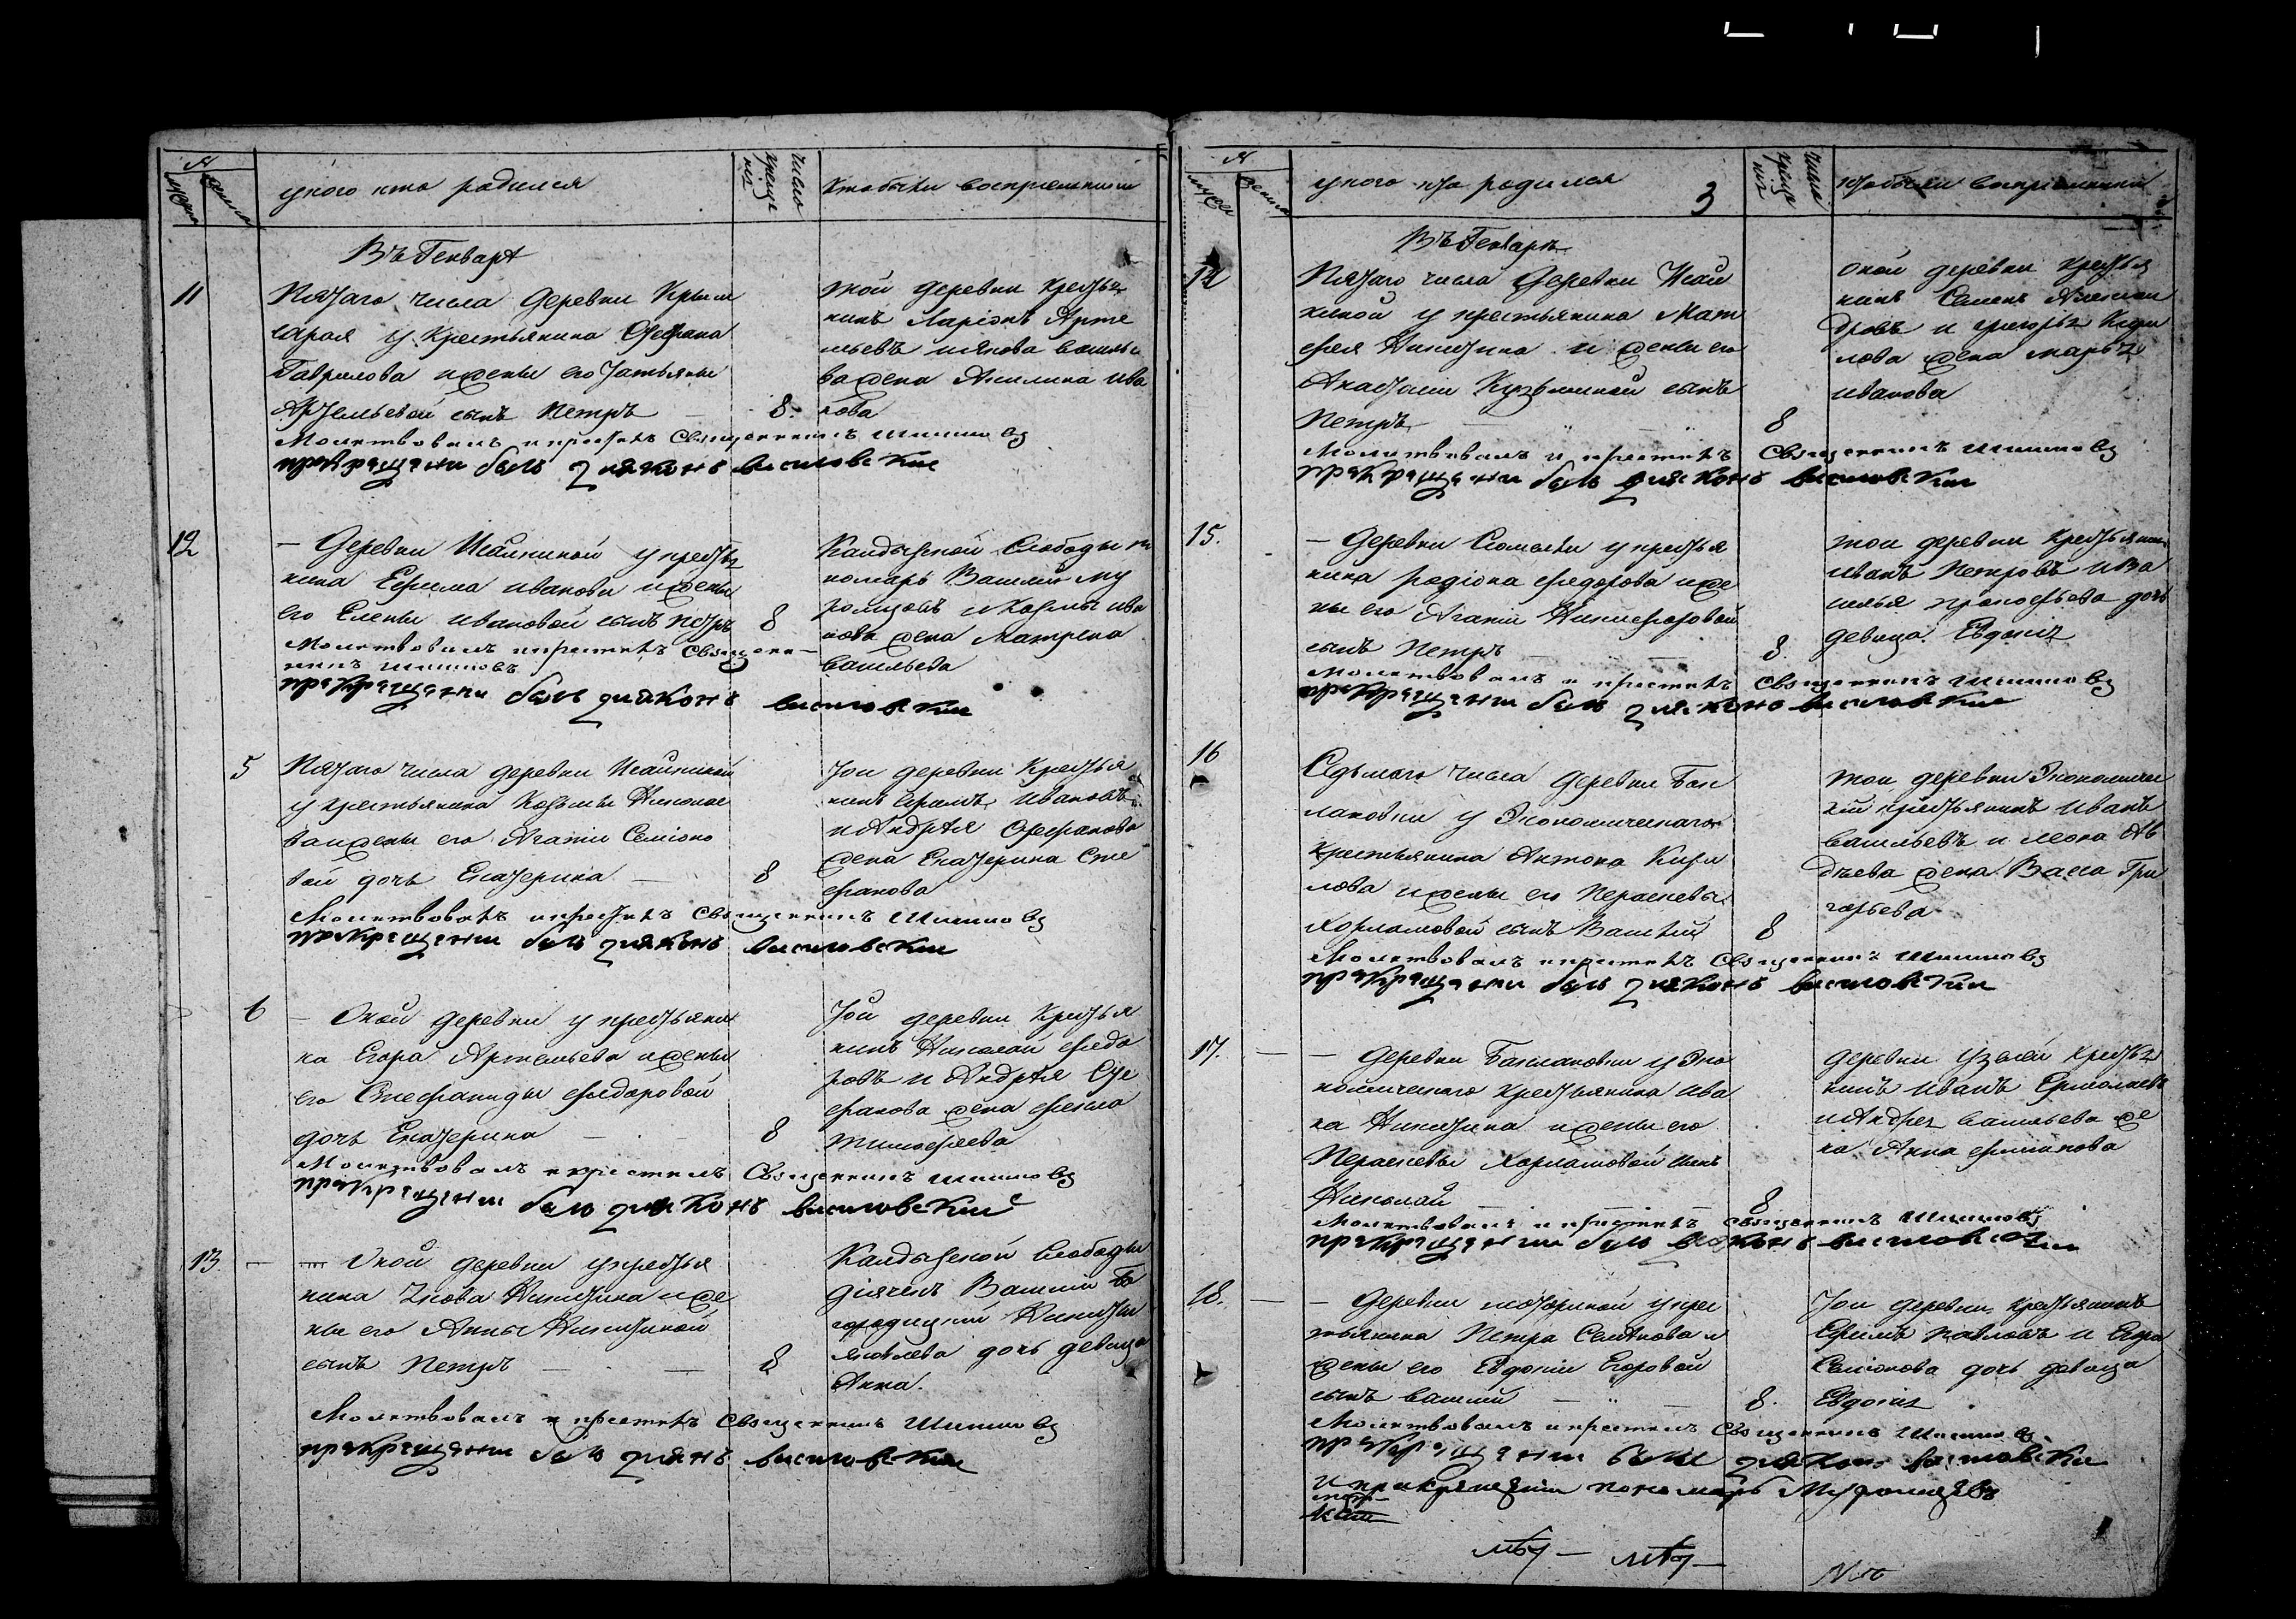 №
мужеска
женска
у кого кто родился
число крещенія
кто были воспріемники
Въ Генварѣ
11
Пятаго числа деревни Крым
сарая у крестьянина Стефана
Гаврилова и жены его Татьяны
Артемьевой сынъ Петръ
8.
той деревни крестья
нинъ Ларіонъ Арте
мьевъ и Якова Василье
ва жена Акилина Ива
нова
Молитвовалъ и крестилъ Священникъ Шишковъ
прикрещении былъ диаконъ висиловский
12
– Деревни Исайкиной у крестья
нина Ефима Иванова и жены
его Елены Ивановой сынъ Петръ
8
Кандызской Слободы по
номарь Василій Му
ромцовъ и Козмы Ива
нова жена Матрена
Васильева
Молитвовалъ и крестилъ Священ
никъ Шишковъ
прикрещении былъ диаконъ висиловский
5
Пятаго числа деревни Исайкиной
у крестьянина Козьмы Николае
ва и жены его Агапіи Семіоно
вой дочь Екатерина
8
Той деревни крестья
нинъ Ефимъ Ивановъ
и Андрѣя Стефанова
жена Екатерина Сте
фанова
Молитвовалъ и крестилъ Священникъ Шишковъ
прикрещении былъ диаконъ висиловский
6
– Оной деревни у крестьяни
на Егора Артемьева и жены
его Стефаниды Федоровой
дочь Екатерина
8
Той деревни крестья
нинъ Николай Федо
ровъ и Андрѣя Сте
фанова жена Фекла
Тимофеева
Молитвовалъ и крестилъ Священникъ Шишковъ
прикрещении былъ диаконъ висиловский
13
– Оной деревни у крестья
нина Якова Никитина и же
ны его Анны Никитиной
сынъ Петръ
8
Кандызской Слободы
дьячекъ Василій Бо
городицкій Никиты
Яковлева дочь девица
Анна.
Молитвовалъ и крестилъ Священникъ Шишковъ
прикрещении былъ диянъ висиловский
№
мужеска
женска
у кого кто родился
3
число крещенія
кто были воспріемники
Въ Генварѣ
14
Пятаго числа Деревни Исай
киной у крестьянина Мат
фея Никитина и жены его
Анастасіи Кузьминой сынъ
Петръ
8
оной деревни крестья
нинъ Семенъ Алексан
дровъ и Григорья Кири
лова жена Марья
Иванова
Молитвовалъ и крестилъ Священникъ Шишковъ
прикрещении былъ диаконъ висиловский
15.
– Деревни у крестья
нина Родіона Федорова и же
ны его Агапіи Никифоровой
сынъ Петръ
8.
той деревни крестьянинъ
Иванъ Петровъ и Ва
силья Прокофьева дочь
девица Евдокія
Молитвовалъ и крестилъ Священникъ Шишковъ
прикрещении былъ диаконъ висиловский
16
Седьмого числа деревни Бак
лановки у Экономическаго
крестьянина Антона Кири
лова и жены его Парасковьи
Харламовой сынъ Василій
8
той деревни Экономичес
кій крестьянинъ Иванъ
Васильевъ и Леона Ав
дѣева жена Васса Гри
горьева
Молитвовалъ и крестилъ Священникъ Шишковъ
прикрещении былъ диаконъ висиловский
17.
– Деревни Баклановки у Эко
номическаго крестьянина Ива
на Никитина и жены его
Парасковьи Харламовой сынъ
Николай
8
деревни Узелей крестья
нинъ Иванъ Ермолаевъ
и Андрея Васильева же
на Анна
Молитвовалъ и крестилъ Священникъ Шишковъ
прикрещении былъ диаконъ висиловский
18.
– Деревни у крес
тьянина Петра Семенова и
жены его Евдокіи Егоровой
сынъ Василій
8.
Той деревни крестьянинъ
Ефимъ Павловъ и Егора
Семіонова дочь девица
Евдокія
Молитвовалъ и крестилъ Священникъ Шишковъ
прикрещении были диаконъ висиловски
и прикрещении пономарь Муромцовъ